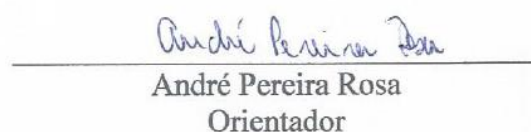 André Pereira Rosa
André Pereira Rosa
Orientador